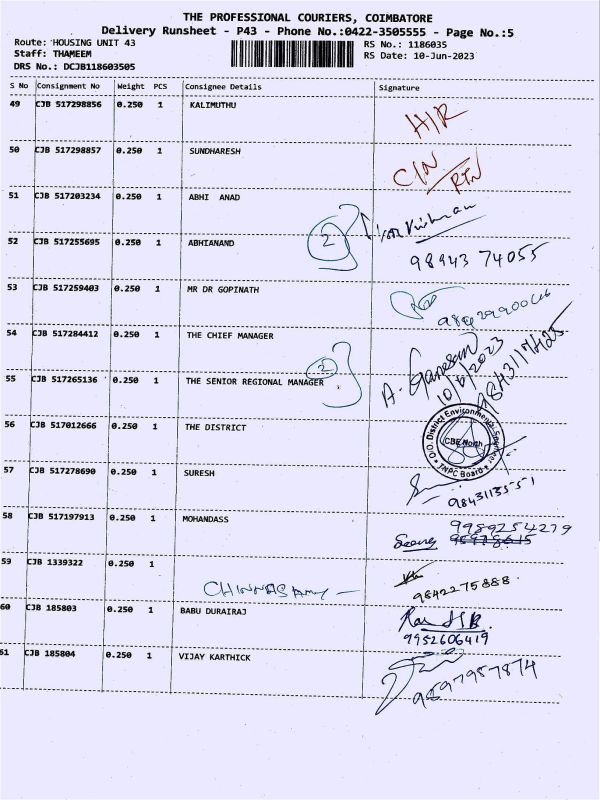 THE PROFESSIONAL COURIERS, COIMBATORE
Delivery Runsheet - P43 - Phone No.:0422-3505555 - Page No.:5
Route: HOUSING UNIT 43 RS No.: 1186035
Staff: THAMEEM RS Date: 10-Jun-2023
DRS No.: DCJB118603505
S No Consignment No Weight PCS Consignee Details Signature
49 CJB 517298856 0.250 1 KALIMUTHU H/R
50 CJB 517298857 0.250 1 SUNDHARESH C/N RTN
51 CJB 517203234 0.250 1 ABHI ANAD
2
52 CJB 517255695 0.250 1 ABHIANAND 98943 74055
53 CJB 517259403 0.250 1 MR DR GOPINATH
54 CJB 517284412 0.250 1 THE CHIEF MANAGER A. Ganesan 10/6/2023
2
55 CJB 517265136 0.250 1 THE SENIOR REGIONAL MANAGER
56 CJB 517012666 0.250 1 THE DISTRICT O/O. District Environmental Engineer CBE North TNPC Board
57 CJB 517278690 0.250 1 SURESH
58 CJB 517197913 0.250 1 MOHANDASS 9989254279
59 CJB 1339322 0.250 1 9842275888.
CHINNASAMY
60 CJB 185803 0.250 1 BABU DURAIRAJ 9952606419
61 CJB 185804 0.250 1 VIJAY KARTHICK 9597957874